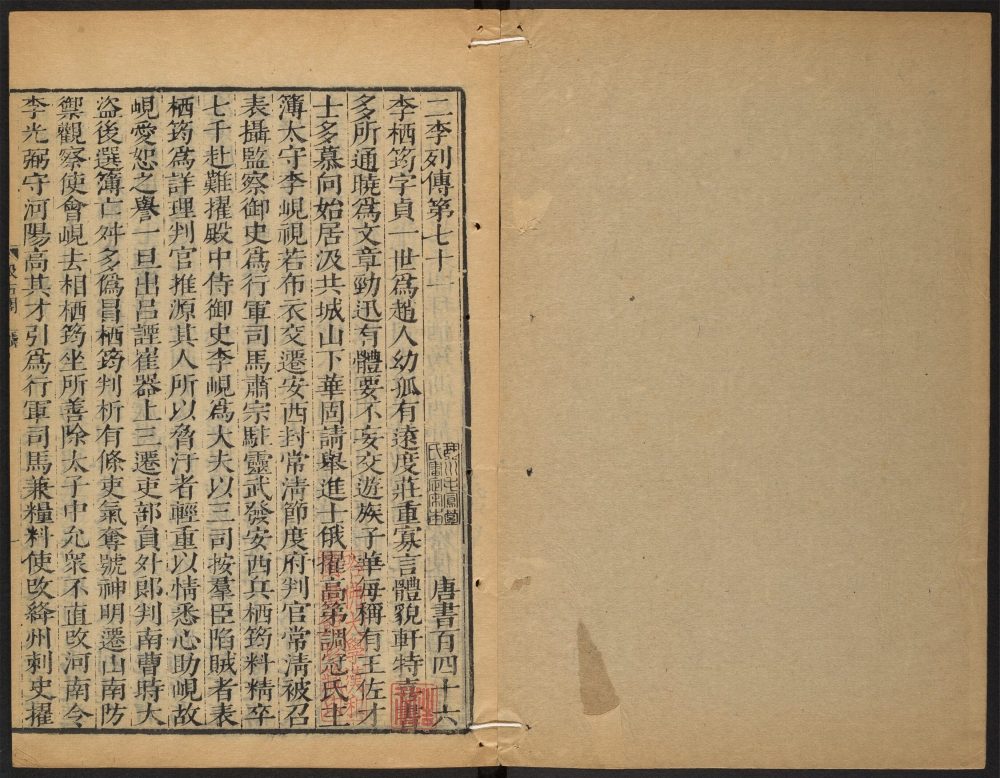 二李列傳第七十一 唐書百四十六
李栖筠字貞一世爲趙人幼孤有遠度莊重寡言體貌軒特喜書
多所通曉爲文章勁迅有體要不妄交遊族子華每稱有王佐才
士多慕向始居汲共城山下華固請舉進士俄擢高第調冠氏主
簿太守李峴視若布衣交遷安西封常淸節度府判官常淸被召
表攝監察御史爲行軍司馬肅宗駐靈武發安西兵栖筠料精卒
七千赴難擢殿中侍御史李峴爲大夫以三司按羣臣陷賊者表
栖筠爲詳理判官推源其人所以脅汙者輕重以情悉心助峴故
峴愛恕之譽一旦出呂諲崔器上三遷吏部員外郎判南曹時大
盜後選簿亡舛多僞冒栖筠判析有條吏氣奪號神明遷山南防
禦觀察使會峴去相栖筠坐所善除太子中允衆不直改河南令
李光弼守河陽高其才引爲行軍司馬兼糧料使改絳州刺史擢